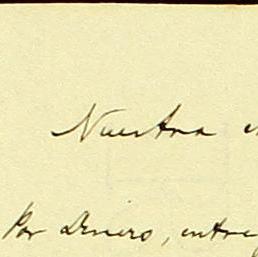 Nuestra
Por dinero, entre